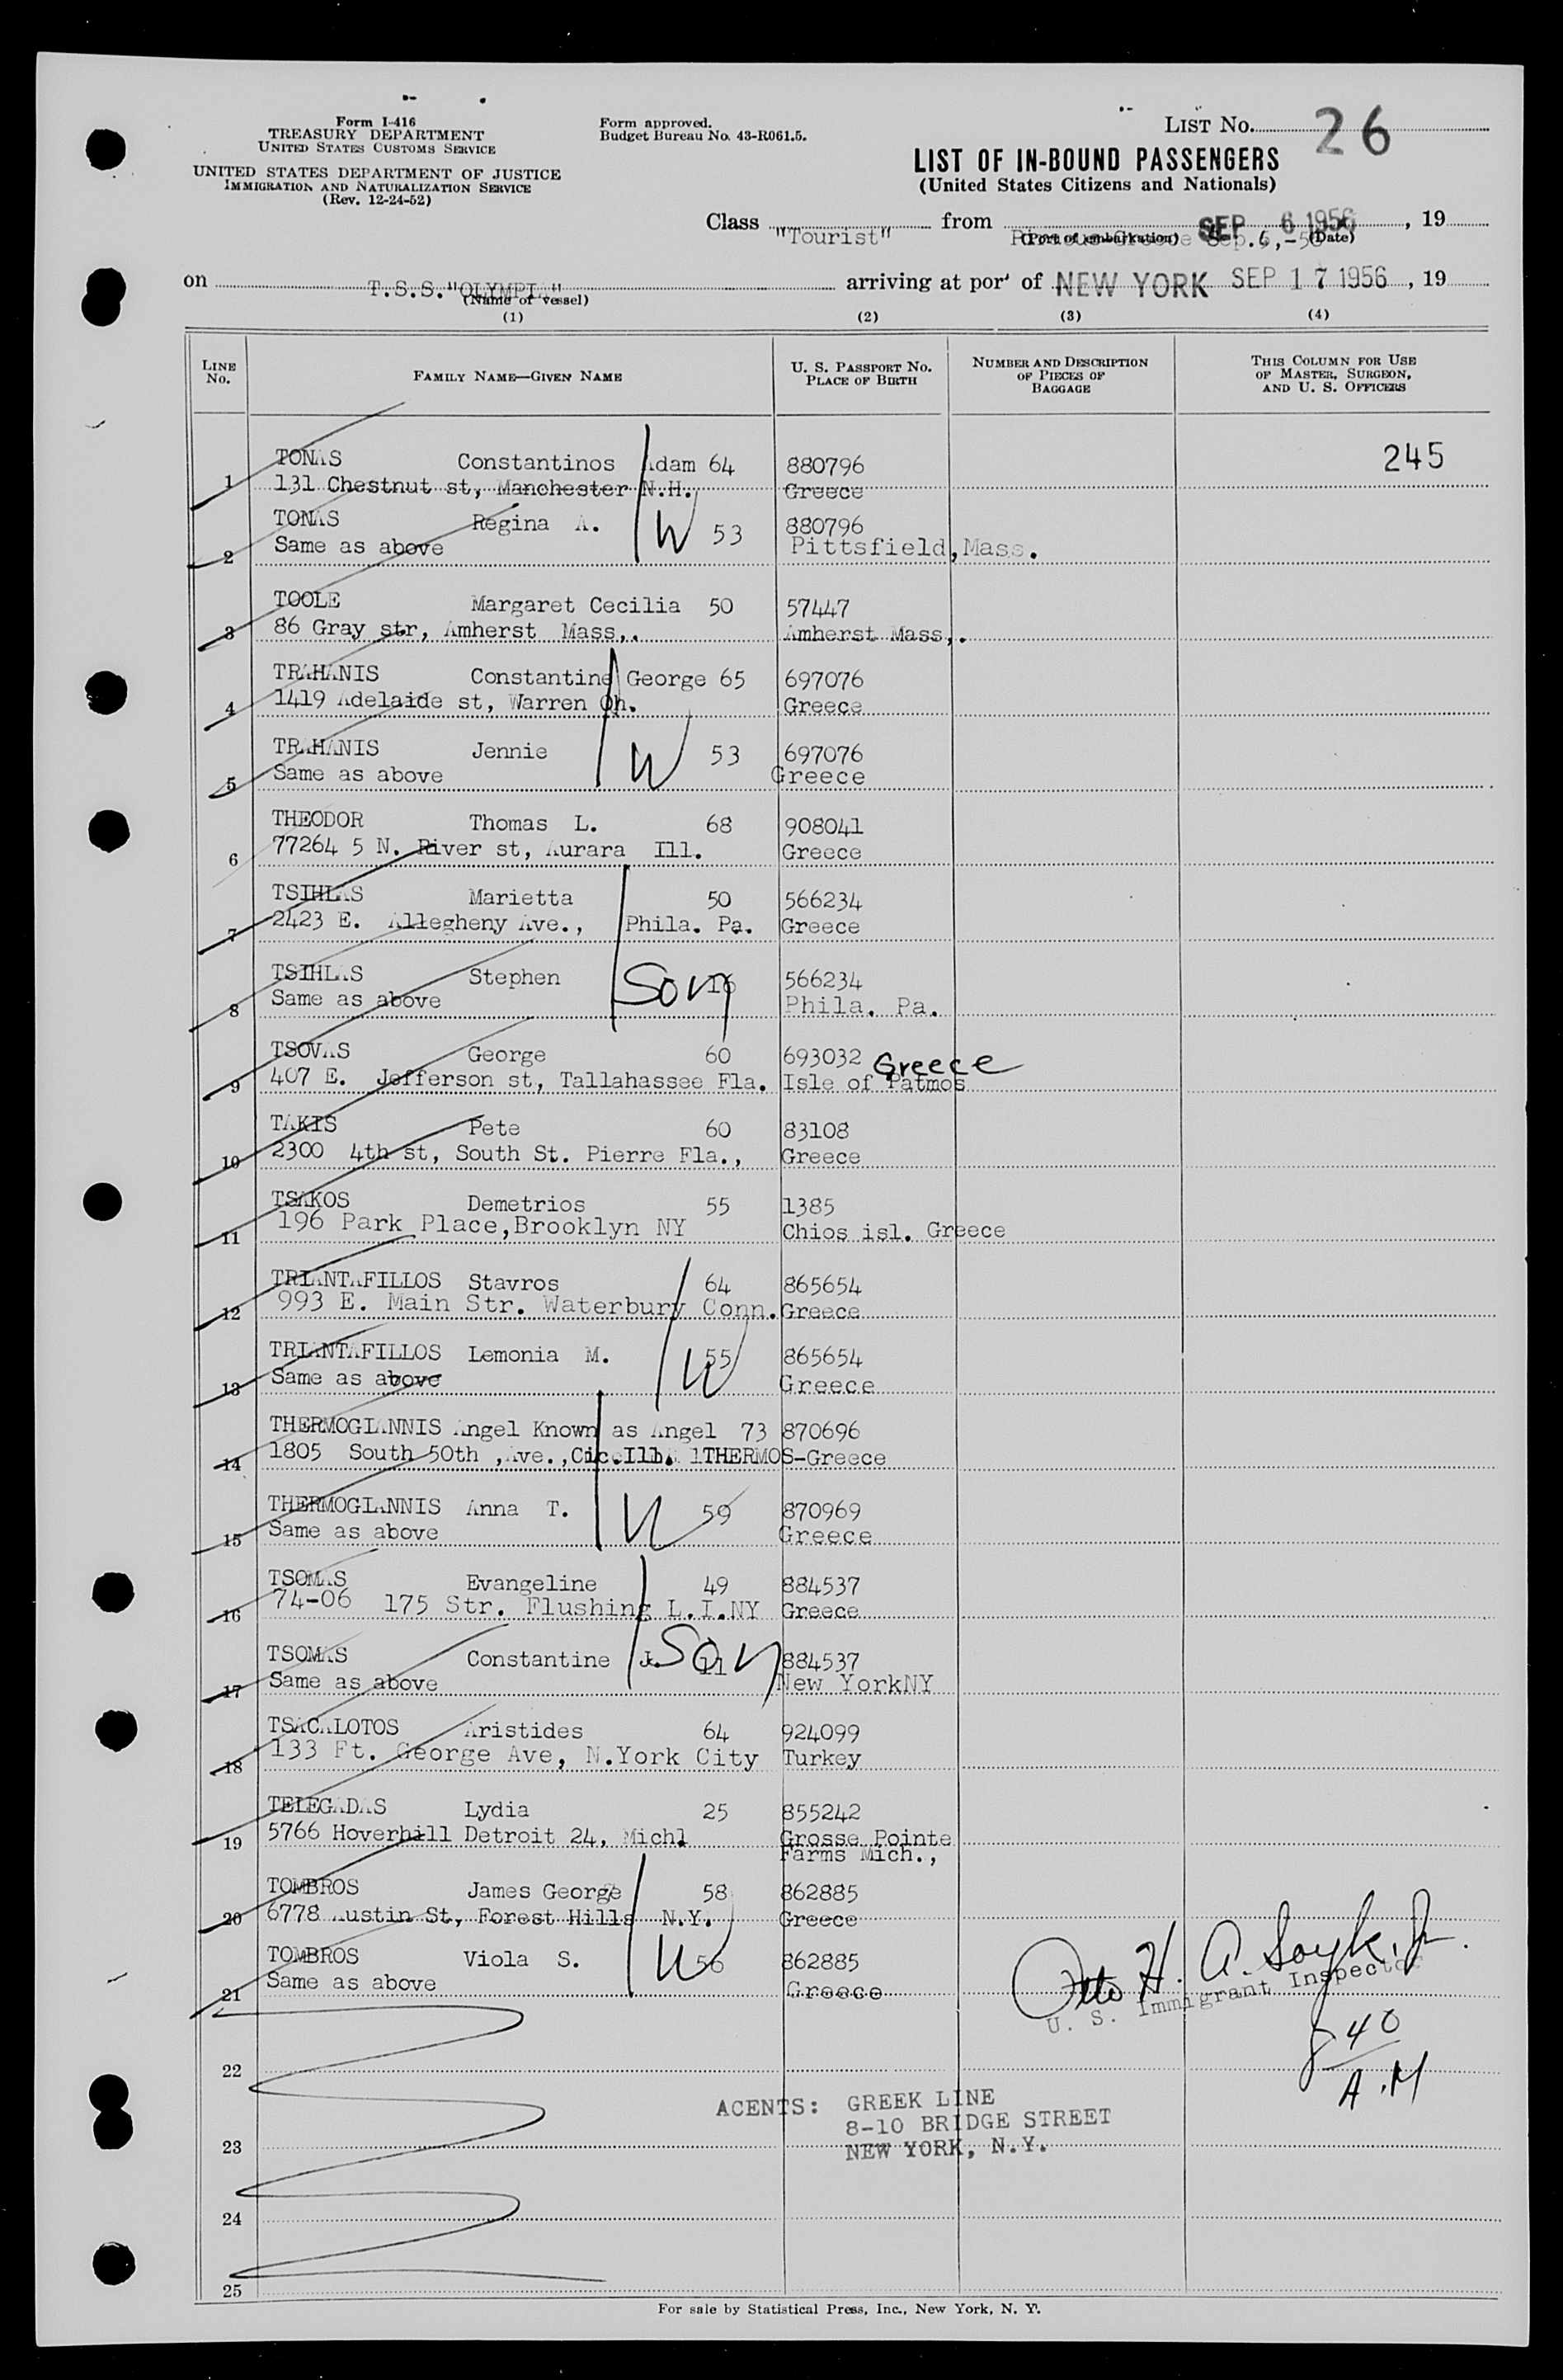 Form I-416
TREASURY DEPARTMENT
UNITED STATES CUSTOMS SERVICE
UNITED STATES DEPARTMENT OF JUSTICE
IMMIGRATION AND NATURALIZATION SERVICE
(Rev. 12-24-52)
Form approved.
Budget Bureau No. 43-R061.5.
LIST No. 26
LIST OF IN-BOUND PASSENGERS
(United States Citizens and Nationals)
Class "Tourist" from SEP 6 1956, 19
(Port of embarkation) (Date)
on T.S.S."OLYMPIA" arriving at port of NEW YORK SEP 17 1956, 19
(Name of vessel)
(1) (2) (3) (4)
LINE No. FAMILY NAME—GIVEN NAME U. S. PASSPORT No. PLACE OF BIRTH NUMBER AND DESCRIPTION OF PIECES OF BAGGAGE THIS COLUMN FOR USE OF MASTER, SURGEON, AND U. S. OFFICERS
TONAS Constantinos Adam 64 880796 245
1 131 Chestnut st, Manchester N.H. Greece
TONAS Regina A. W 53 880796
2 Same as above Pittsfield,Mass.
TOOLE Margaret Cecilia 50 57447
3 86 Gray str, Amherst Mass,. Amherst Mass,.
TRAHANIS Constantine George 65 697076
4 1419 Adelaide st, Warren Oh. Greece
TRAHANIS Jennie W 53 697076
5 Same as above Greece
THEODOR Thomas L. 68 908041
6 77264 5 N. River st, Aurara Ill. Greece
TSIHLAS Marietta 50 566234
7 2423 E. Allegheny Ave., Phila. Pa. Greece
TSIHLAS Stephen Son 16 566234
8 Same as above Phila. Pa.
TSOVAS George 60 693032 Greece
9 407 E. Jefferson st, Tallahassee Fla. Isle of Patmos
TAKIS Pete 60 83108
10 2300 4th st, South St. Pierre Fla., Greece
TSAKOS Demetrios 55 1385
11 196 Park Place,Brooklyn NY Chios isl. Greece
TRIANTAFILLOS Stavros 64 865654
12 993 E. Main Str. Waterbury Conn. Greece
TRIANTAFILLOS Lemonia M. W 55 865654
13 Same as above Greece
THERMOGIANNIS Angel Known as Angel 73 870696
14 1805 South 50th ,Ave.,Cic.Ill. THERMOS-Greece
THERMOGIANNIS Anna T. W 59 870969
15 Same as above Greece
TSOMAS Evangeline 49 884537
16 74-06 175 Str. Flushing L.I.NY Greece
TSOMAS Constantine J. Son 11 884537
17 Same as above New YorkNY
TSACALOTOS Aristides 64 924099
18 133 Ft. George Ave, N.York City Turkey
TELEGADAS Lydia 25 855242
19 5766 Hoverhill Detroit 24, Michl Grosse Pointe
Farms Mich.,
TOMBROS James George 58 862885
20 6778 Austin St, Forest Hills N.Y. Greece
TOMBROS Viola S. W 56 862885
21 Same as above Greece
Otto H. A. Soyk, Jr.
U. S. Immigrant Inspector
8 40
A.M
22
ACENTS: GREEK LINE
8-10 BRIDGE STREET
23 NEW YORK, N.Y.
24
25
For sale by Statistical Press, Inc., New York, N. Y.